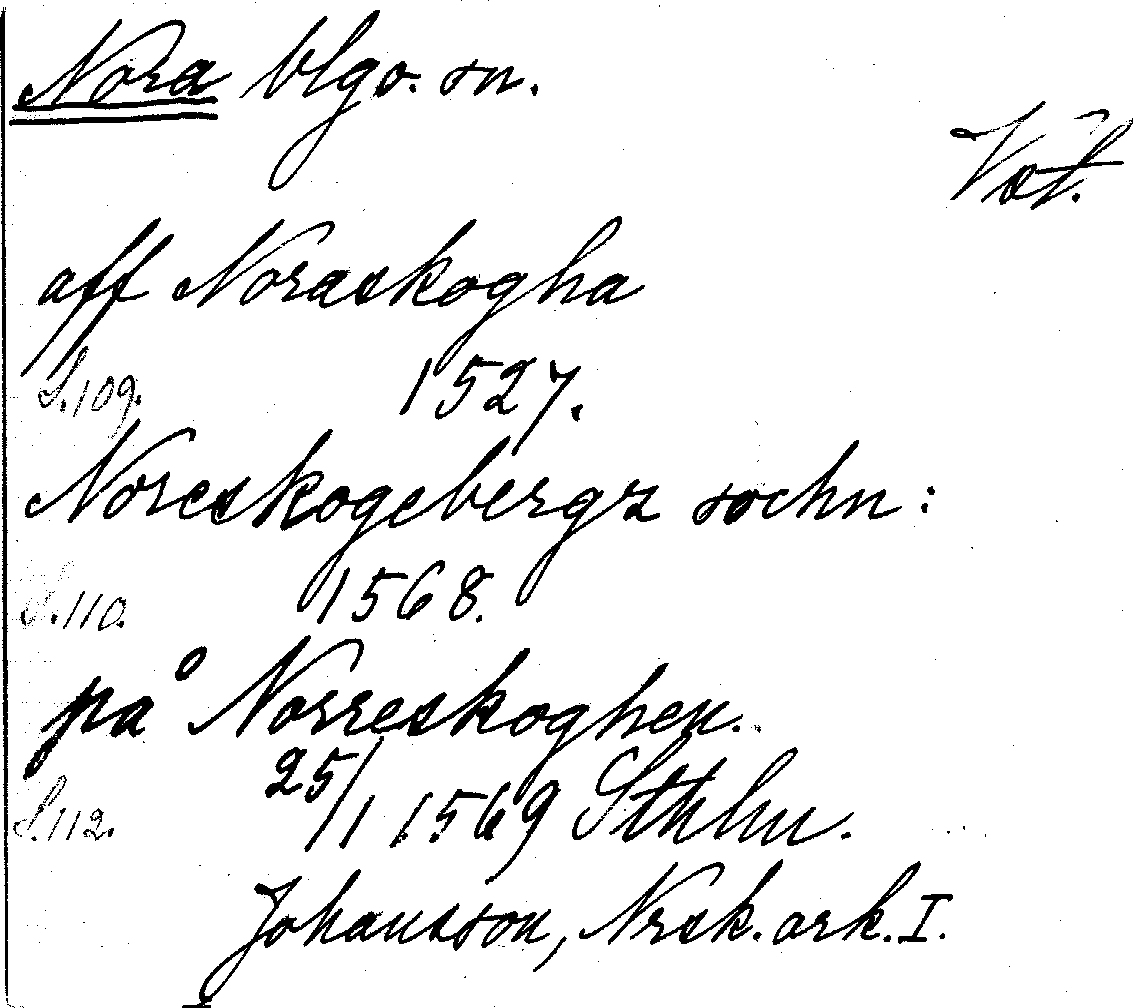 Nora blgo. sn.
Vst.
aff Noraskogha
S. 109. 1527.
Noreskogebergz sochn:
S. 110. 1568.
på Norreskoghen.
S. 112. 25/1 1569 Sthlm.
Johansson, Nrsk. ark. I.